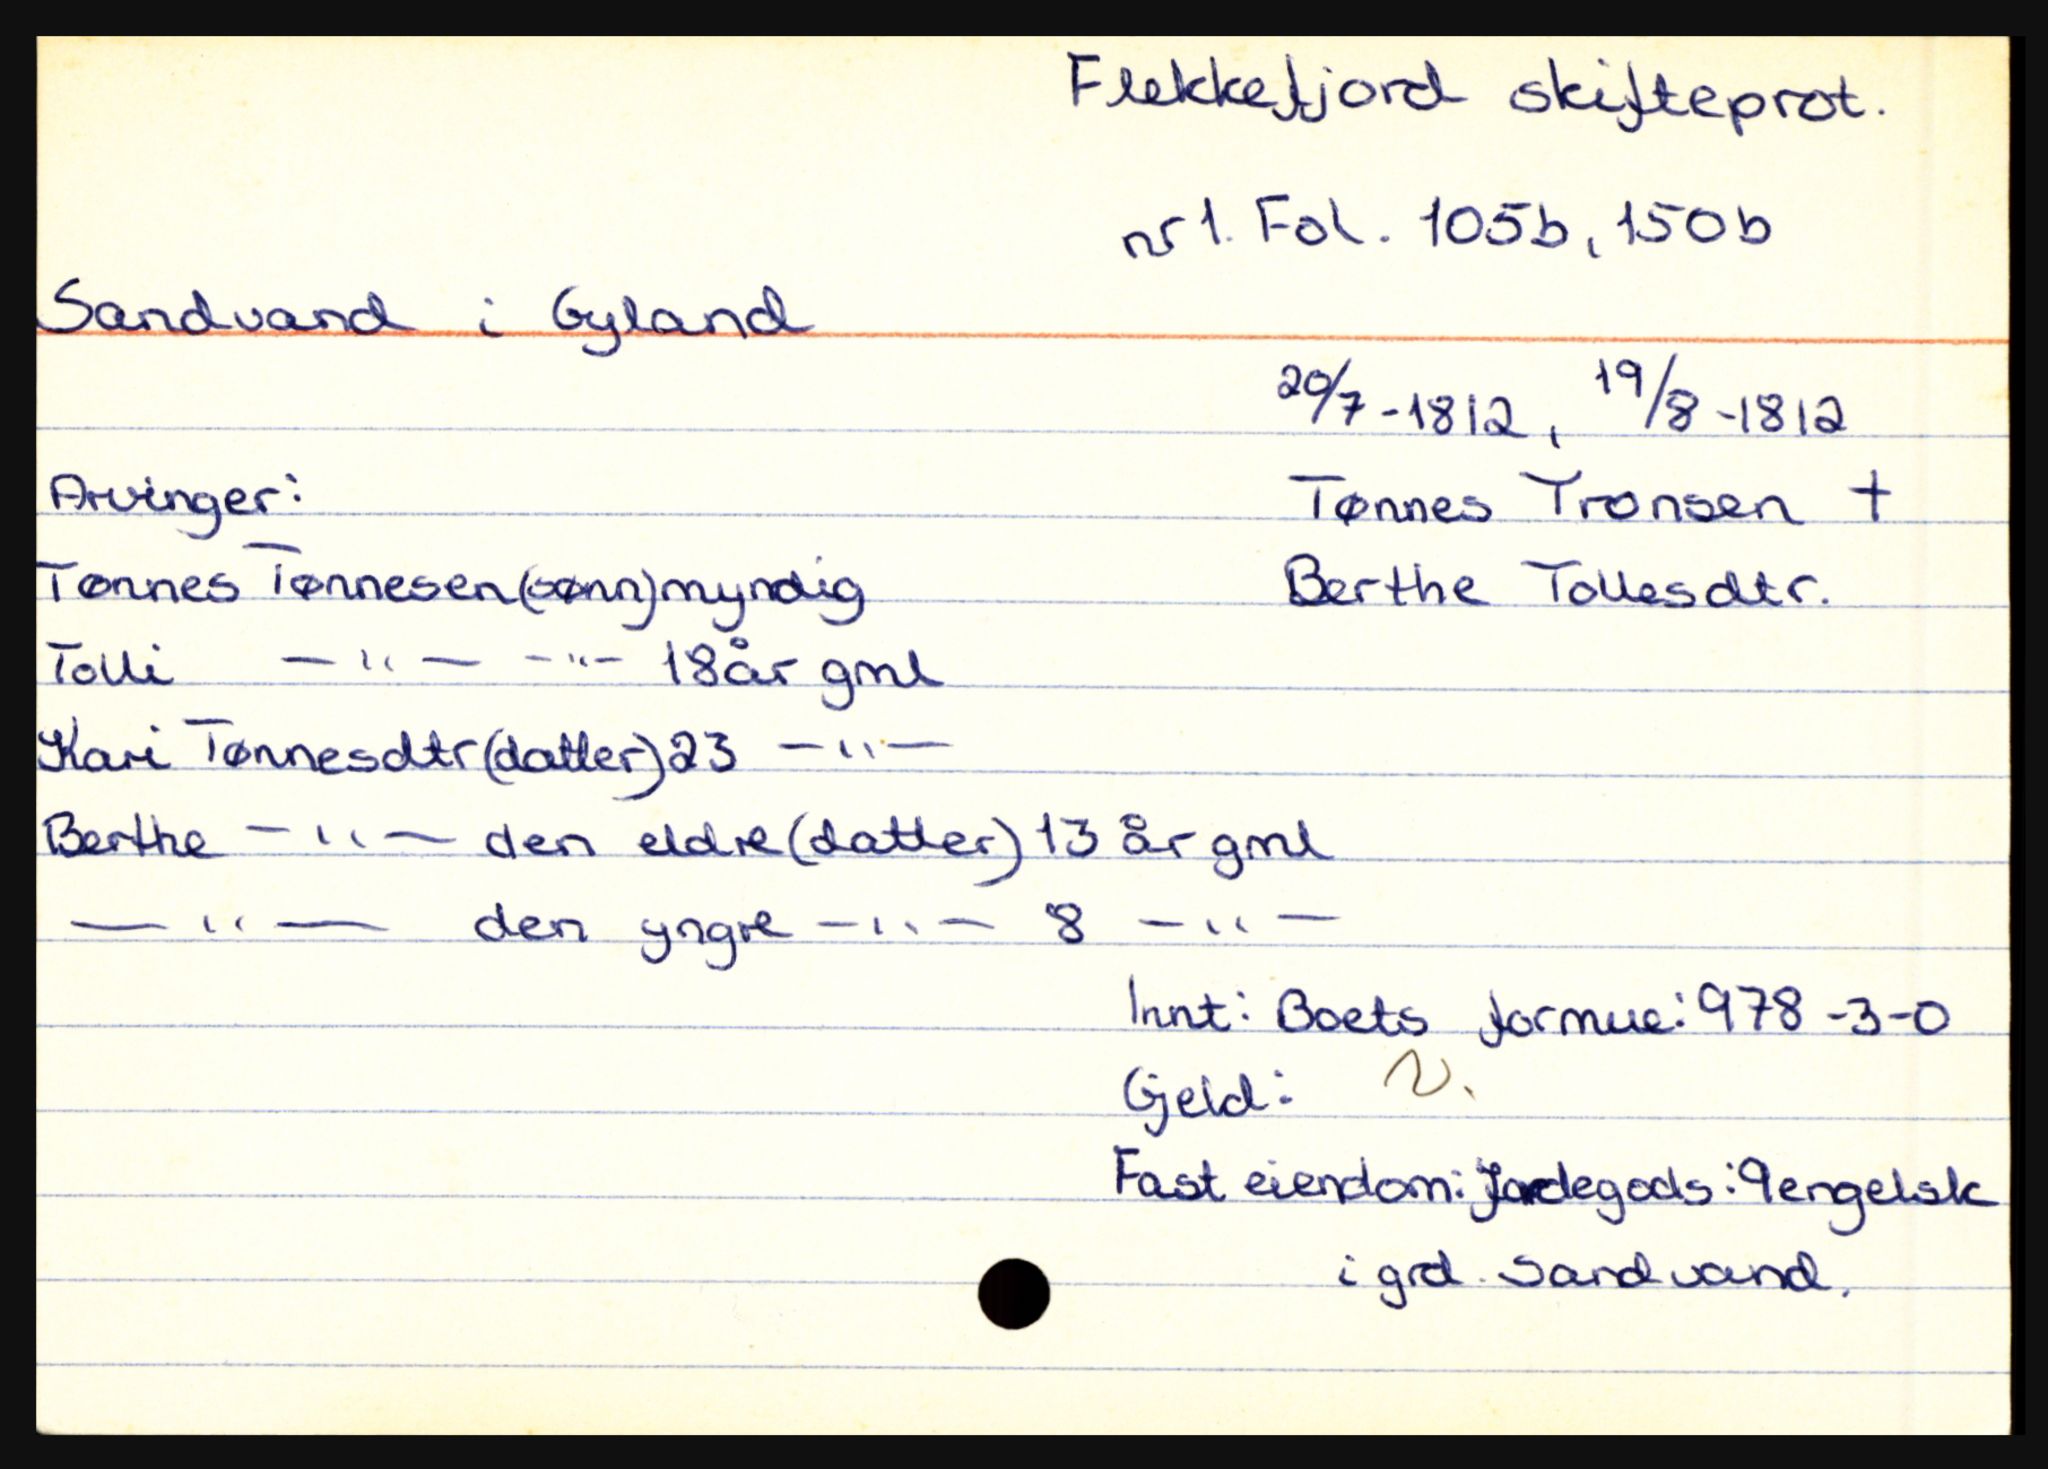 Flekkefjord skifteprot.
nr 1. Fol. 105b, 150b
Sandvand i Gyland
20/7 - 1812, 19/8 - 1812
Arvinger:
Tønnes Tronsen †
Tønnes Tønnesen (sønn) myndig
Berthe Tollesdtr.
Tolli — " — - " - 18 år gml
Kari Tønnesdtr (datter) 23 — " —
Berthe — " — den eldre (datter) 13 år gml
— " — den yngre — " — 8 — " —
Innt: Boets formue: 978 - 3 - 0
Gjeld:
Fast eiendom: Jordegods: 9 engelsk
i grd. Sandvand.